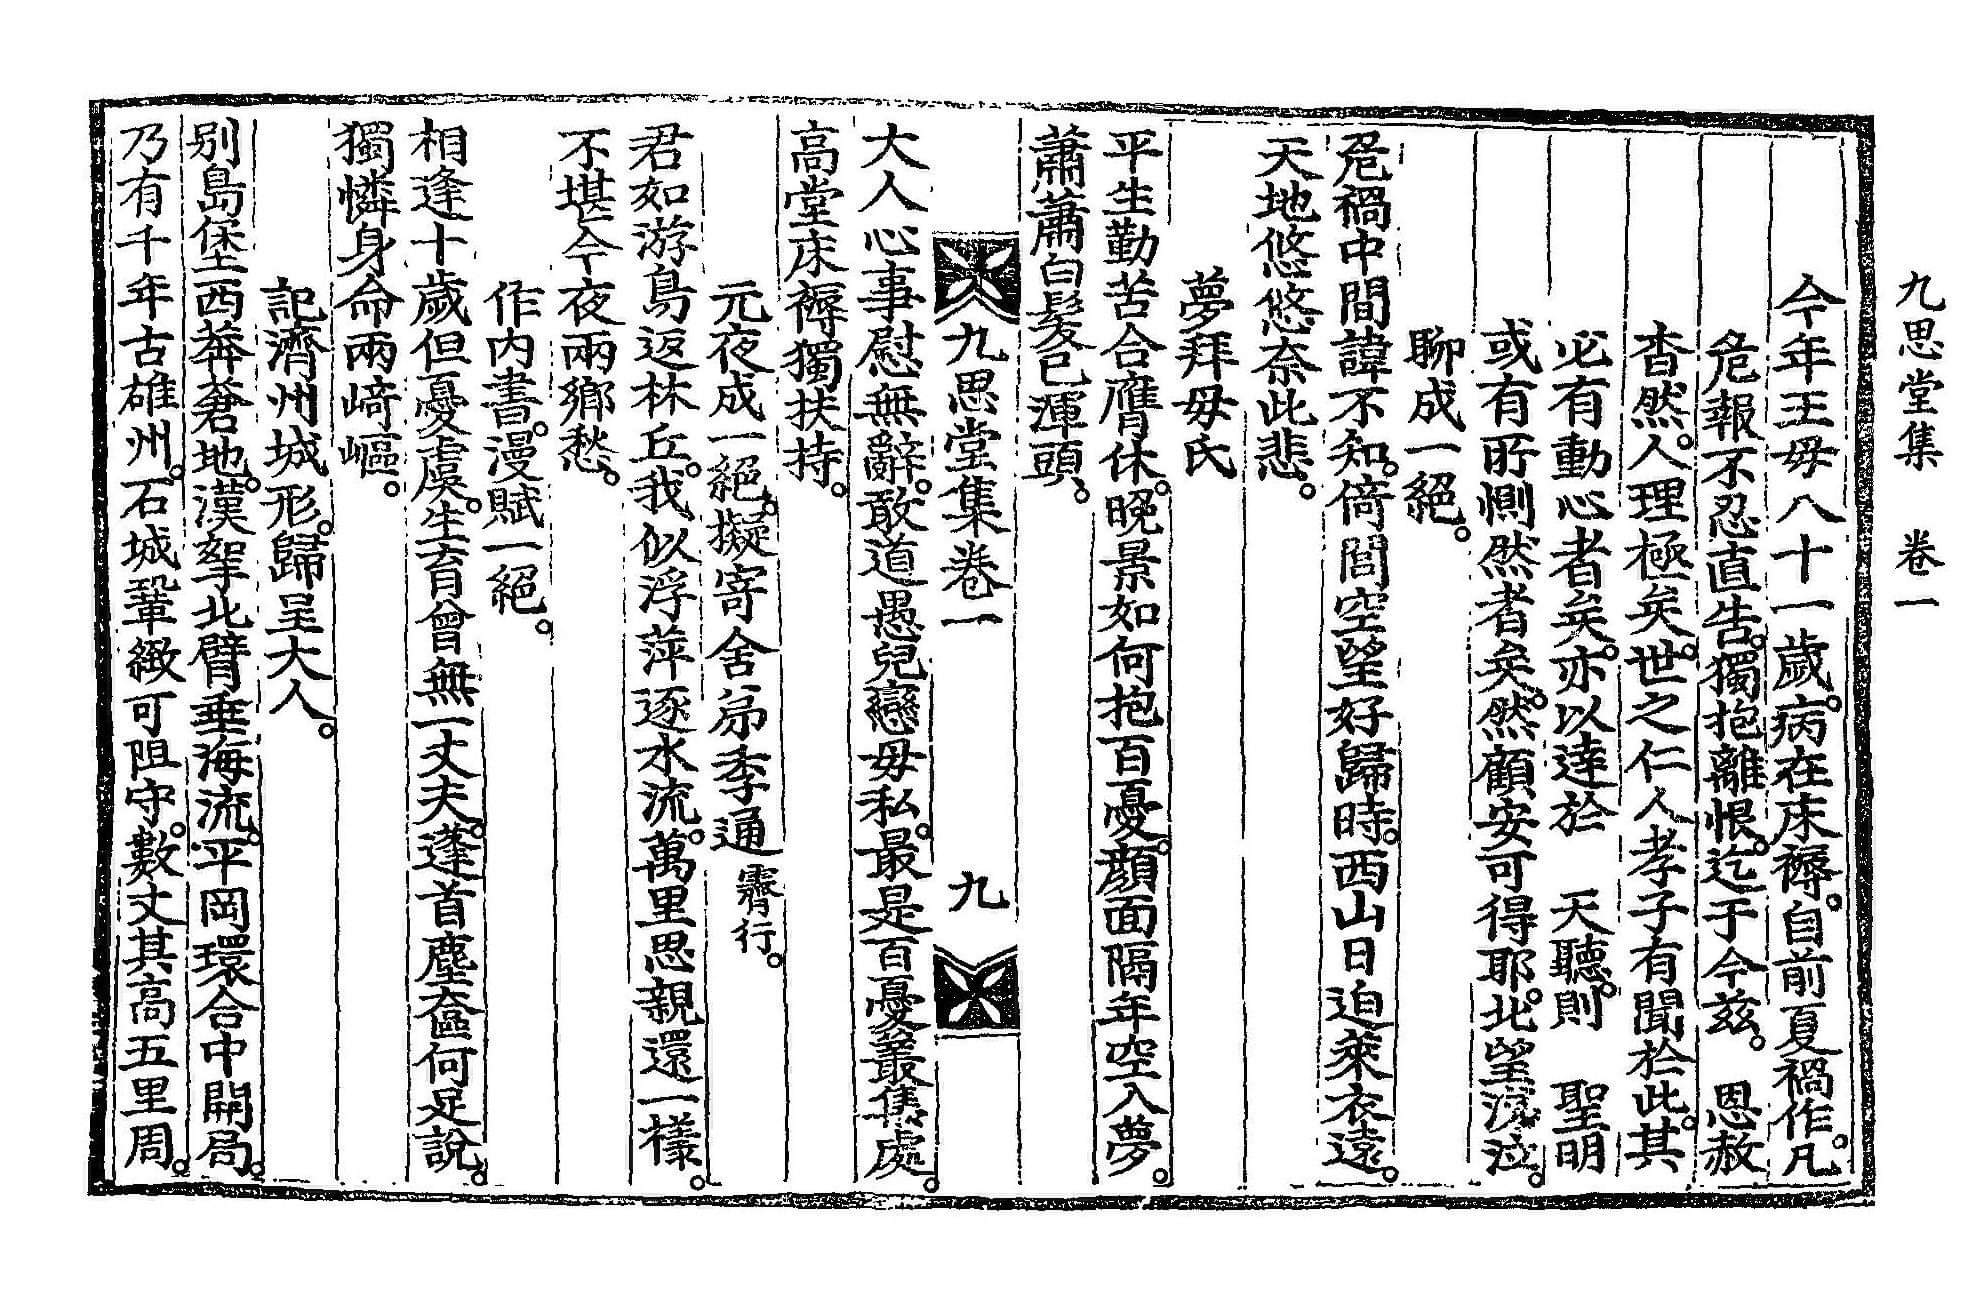 九思堂集 卷一
今年王母八十一歲。病在床褥。自前夏禍作。凡
危報不忍直告。獨抱離恨。迄于今茲。 恩赦
杳然。人理極矣。世之仁人孝子有聞於此。其
必有動心者矣。亦以達於 天聽。則 聖明
或有所惻然者矣。然顧安可得耶。北望淚泣。
聊成一絕。
危禍中間諱不知。倚閭空望好歸時。西山日迫萊衣遠。
天地悠悠奈此悲。
夢拜母氏
平生勤苦合膺休。晚景如何抱百憂。顏面隔年空入夢。
蕭蕭白髮已渾頭。
九思堂集卷一 九
大人心事慰無辭。敢道愚兒戀母私。最是百憂叢集處。
高堂床褥獨扶持。
元夜成一絕。擬寄舍弟季通霽行。
君如游鳥返林丘。我似浮萍逐水流。萬里思親還一樣。
不堪今夜兩鄉愁。
作內書。漫賦一絕。
相逢十歲但憂虞。生育曾無一丈夫。蓬首塵奩何足說。
獨憐身命兩崎嶇。
記濟州城形。歸呈大人。
別島堡西莽蒼地。漢拏北臂垂海流。平岡環合中開局。
乃有千年古雄州。石城鞏緻可阻守。數丈其高五里周。